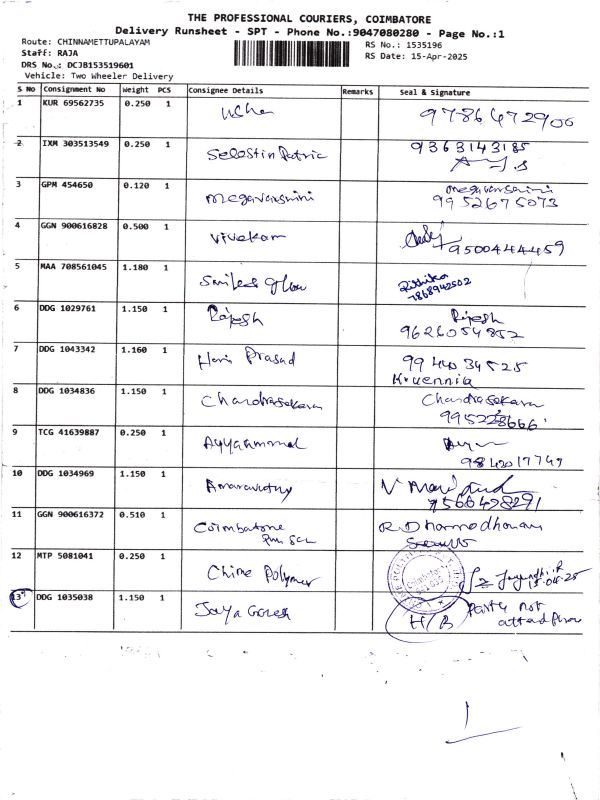 THE PROFESSIONAL COURIERS, COIMBATORE
Delivery Runsheet - SPT - Phone No.:9047080280 - Page No.:1
Route: CHINNAMETTUPALAYAM
RS No.: 1535196
Staff: RAJA
RS Date: 15-Apr-2025
DRS No.: DCJB153519601
Vehicle: Two Wheeler Delivery
S No Consignment No Weight PCS Consignee Details Remarks Seal & Signature
1 KUR 69562735 0.250 1 Usha 9786472906
2 IXM 303513549 0.250 1 Selostin Patric 9363143185
3 GPM 454650 0.120 1 Megavarshini Megavarshini
9952675073
4 GGN 900616828 0.500 1 Vivekam 9500444459
5 MAA 708561045 1.180 1 Smiles glow Rithika
7868942502
6 DDG 1029761 1.150 1 Rajesh Rajesh
9626054852
7 DDG 1043342 1.160 1 Hari Prasad 994034525
8 DDG 1034836 1.150 1 Chandrasekaran Chandrasekaran
9 TCG 41639887 0.250 1 Ayyammal
9842017749
10 DDG 1034969 1.150 1 Amaravathy
7566478291
11 GGN 900616372 0.510 1 Coimbatore R. Dharmodharan
12 MTP 5081041 0.250 1 Chime Polymer
15-04-25
13 DDG 1035038 1.150 1 Jaya Ganesh H/B Party not